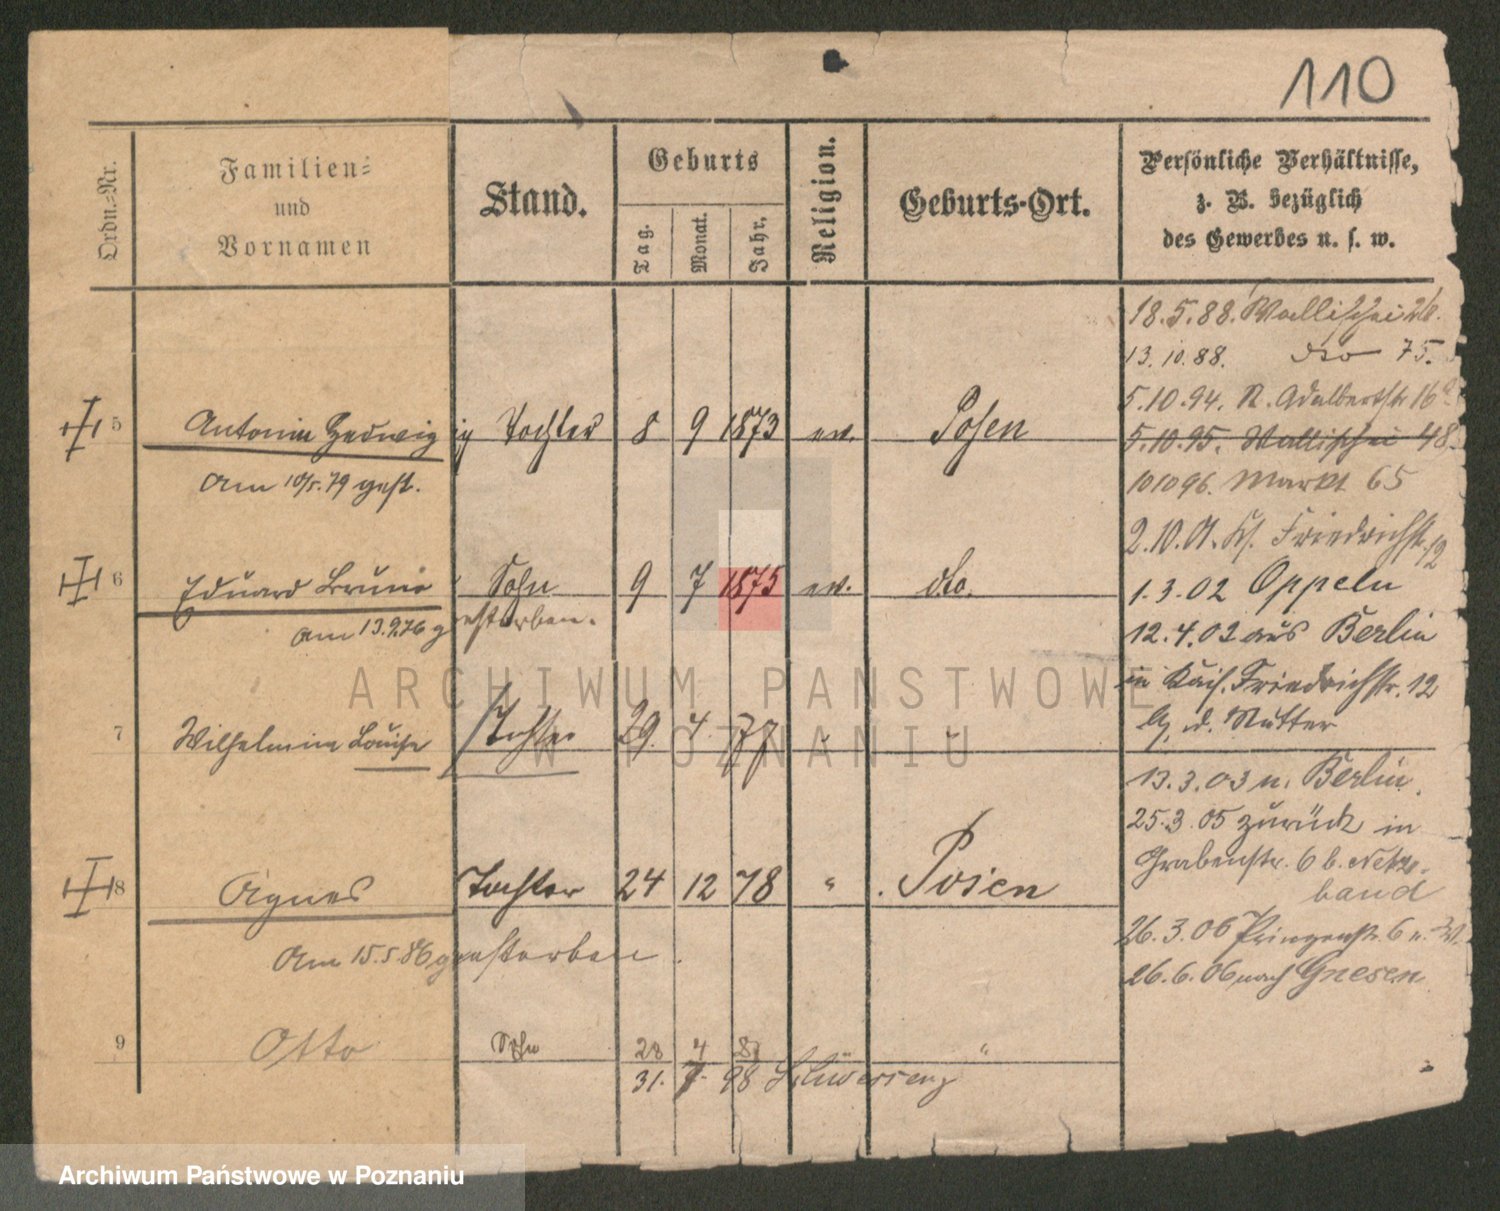 110
Ordn.-Nr.
Familien- und Vornamen
Stand.
Geburts
Tag.
Monat.
Jahr.
Religion.
Geburts-Ort.
Persönliche Verhältnisse,
z. B. bezüglich
des Gewerbes u. s. w.
5 Antonie Hedwig Tochter 8 9 1873 ev. Posen
Am 10/5.79 gest.
6 Eduard Bruno Sohn 9 7 1875 ev. do.
am 13.9.76 gestorben.
7 Wilhelmine Louise Tochter 29. 4. 77 " "
8 Agnes Tochter 24 12 78 " Posen
Am 15.5.86 gestorben.
9 Otto Sohn 28 4 "
31. 7. 98
18.5.88. Wallischei
13.10.88. do 75.
5.10.94. Adalbertstr 16
5.10.95. Wallischei 48.
10 10 96. Markt 65
2.10.01. Friedrichstr. 12
1.3.02 Oppeln
12.4.02 aus Berlin
in Kais. Friedrichstr. 12
b. d. Mutter
13.3.03 n. Berlin.
25.3.05 zurück in
Grabenstr. 6 b.
band
26.3.06 Prinzenstr. 6
26.6.06 nach Gnesen
ARCHIWUM PAŃSTWOWE
W POZNANIU
Archiwum Państwowe w Poznaniu